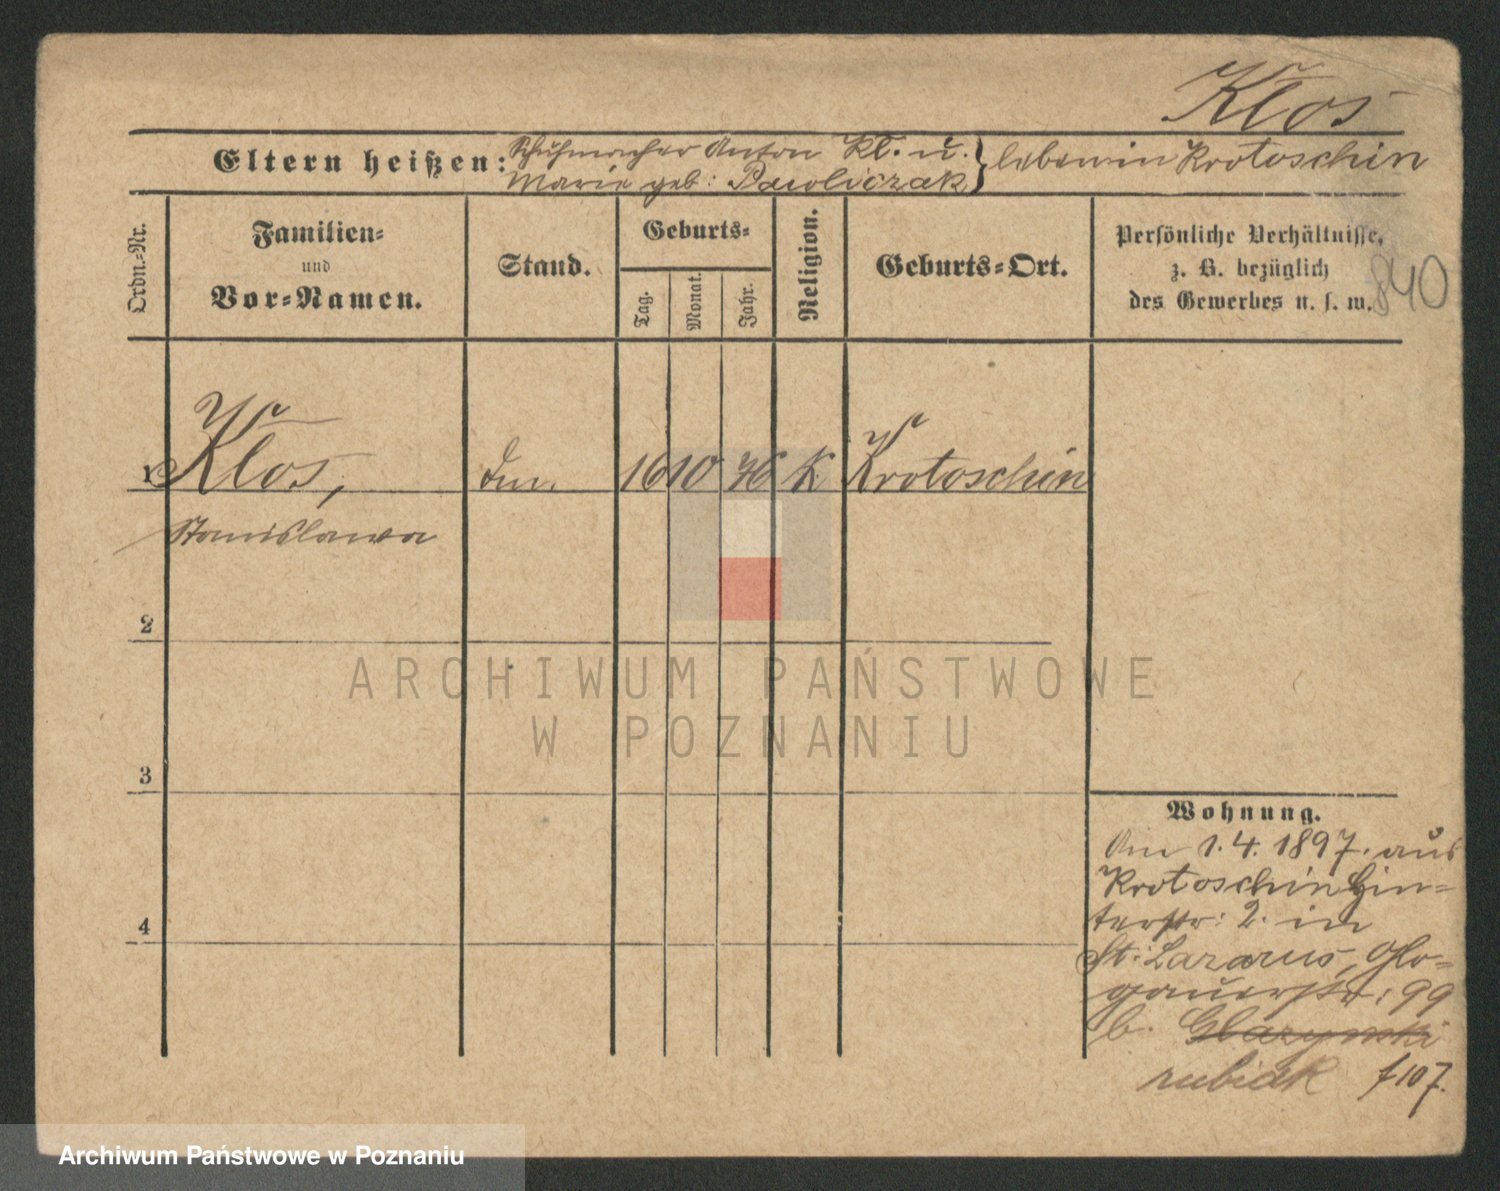 Klos
Eltern heißen: Schuhmacher Anton Kl. u.
Marie geb: Pawoliczak } leben in Krotoschin
Ordn.-Nr.
Familien-
und
Vor-Namen.
Stand.
Geburts-
Tag.
Monat.
Jahr.
Religion.
Geburts-Ort.
Persönliche Verhältnisse,
z. B. bezüglich
des Gewerbes u. s. w.
840
1 Klos, 16 10 76 K Krotoschin
Stanislawa
2
3
4
Wohnung.
Am 1.4.1897. aus
Krotoschin Hin-
terstr: 2. in
St. Lazarus, Glo-
gauerstr: 99
b.
f107.
ARCHIWUM PAŃSTWOWE
W POZNANIU
Archiwum Państwowe w Poznaniu